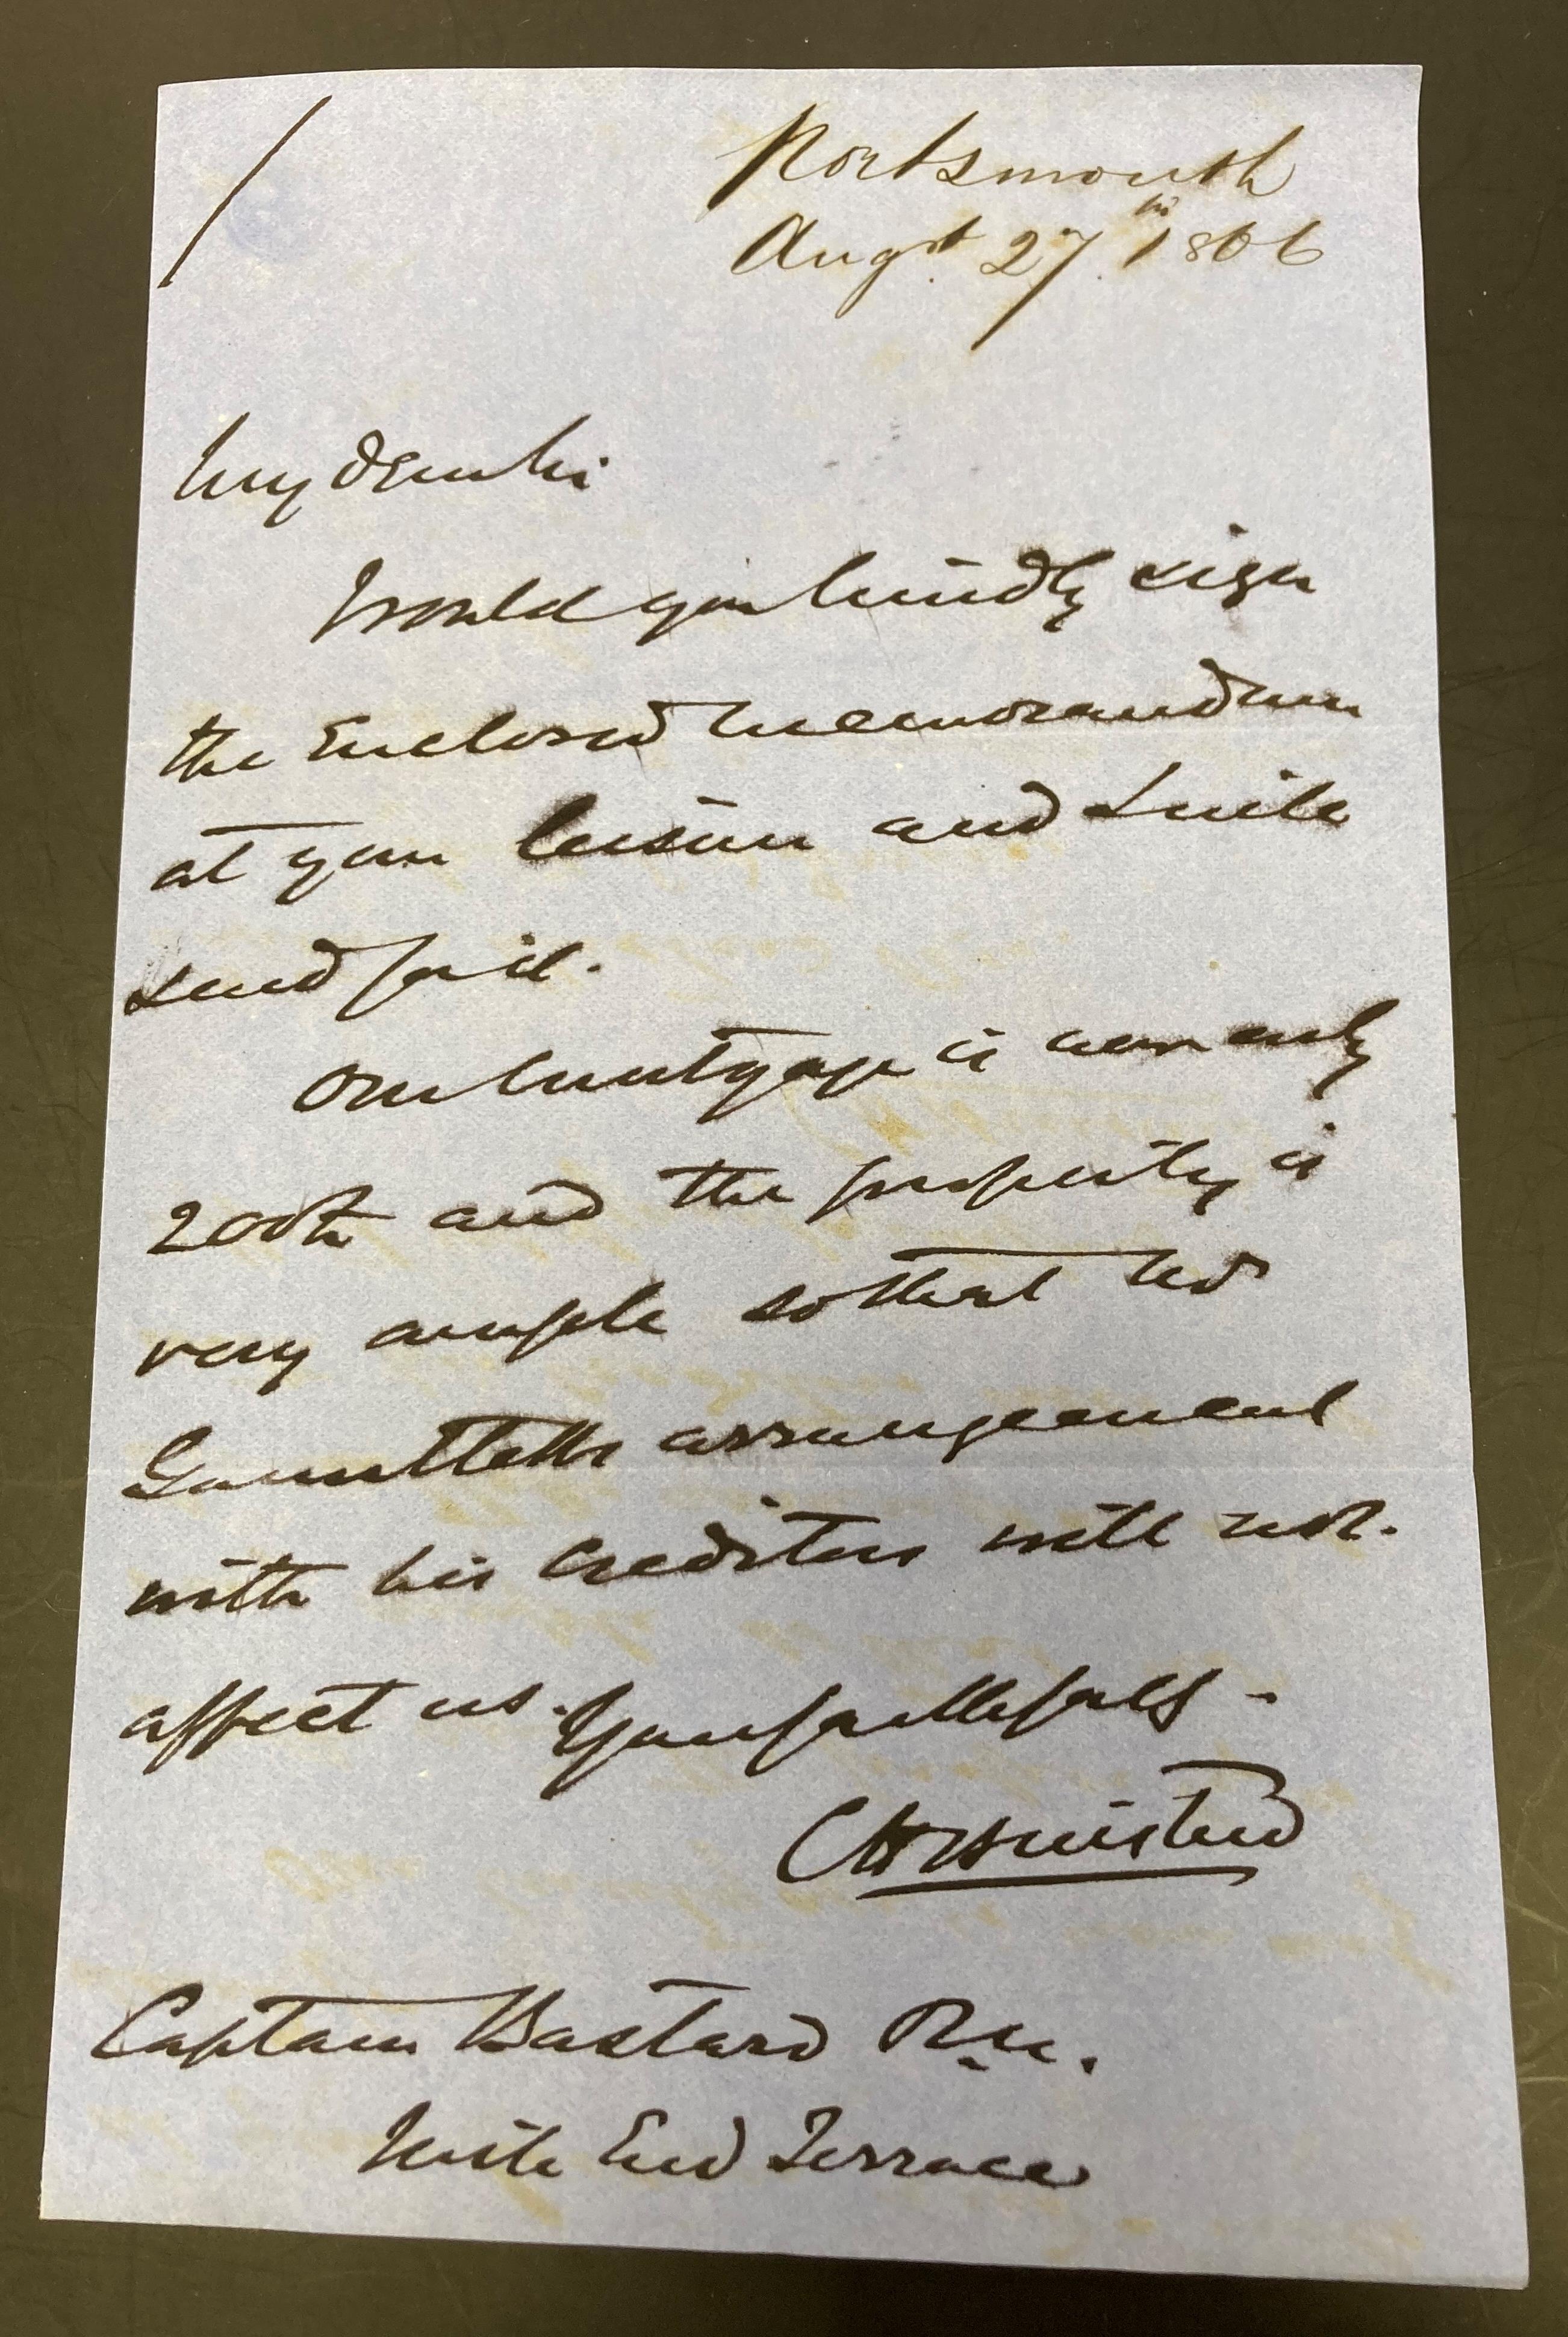 Portsmouth
Augst. 27th. 1866
My dear Sir
Would you kindly sign
the Enclosed Memorandum
at your leisure and I will
send for it.
Our Mortgage is now only
and the property is
very ample so that Mr
arrangement
with his creditors will not.
affect us. Yours faithfully -
Captain Bastard R.N.
Mile End Terrace